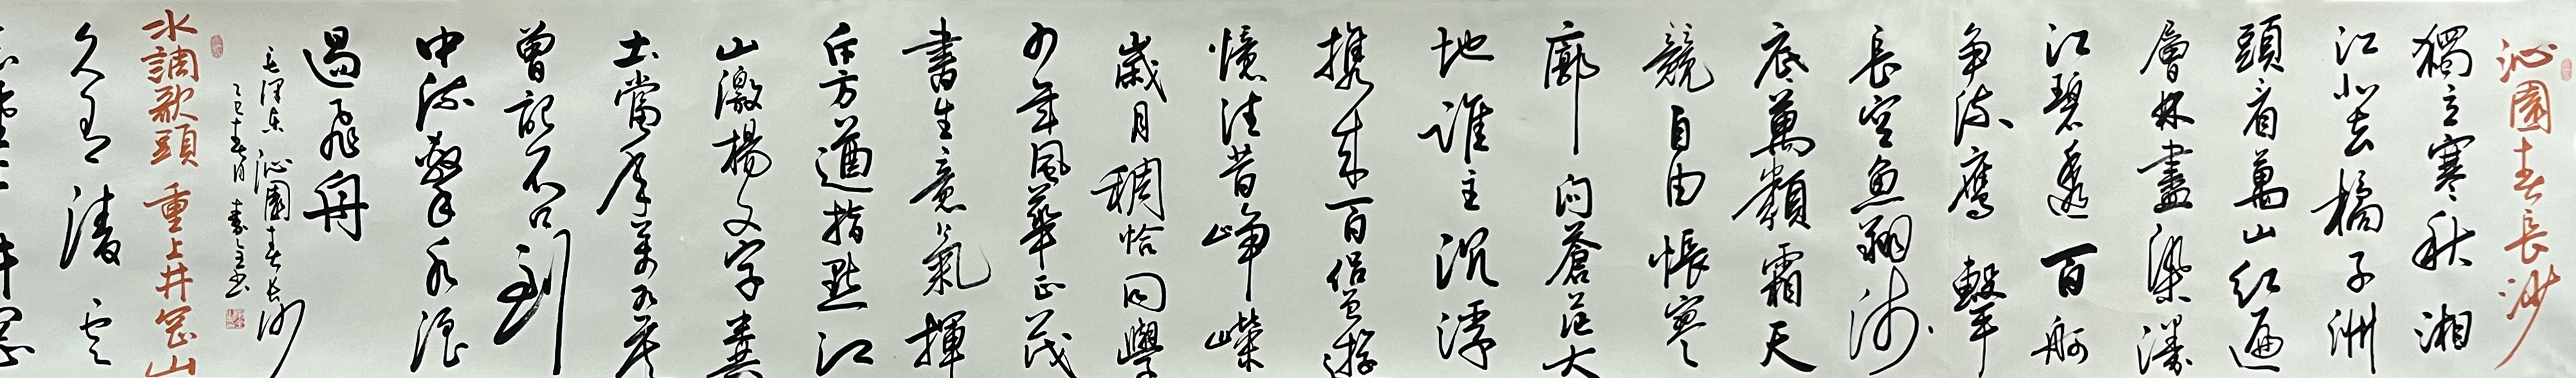 沁園春長沙
獨立寒秋湘
江北去橘子洲
頭看萬山紅遍
層林盡染漫
江碧透百舸
争流鷹擊
長空魚翔淺
底萬類霜天
競自由悵寥
廓問蒼茫大
地誰主沉浮
攜來百侣曾遊
憶往昔崢嶸
歲月稠恰同學
少年風華正茂
書生意氣揮
斥方遒指點江
山激揚文字糞
土當年萬户矦
曾記否到
中流擊水浪
遏飛舟
毛澤東 沁園春長沙
乙巳
水調歌頭 重上井岡山
久有凌雲